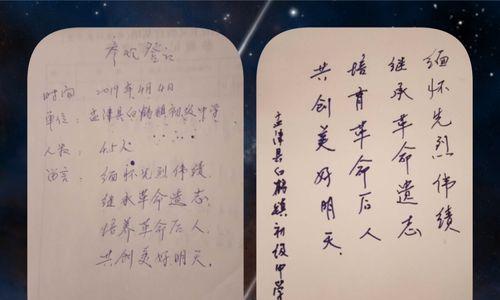 参观登记
时间：2019年4月4
单位：孟津县白鹤镇初级中学
人数：45人
留言：缅怀先烈伟绩
继承革命遗志
培养革命后人
共创美好明天.
缅怀先烈伟绩
继承革命遗志
培育革命后人
共创美好明天.
孟津县白鹤镇初级中学